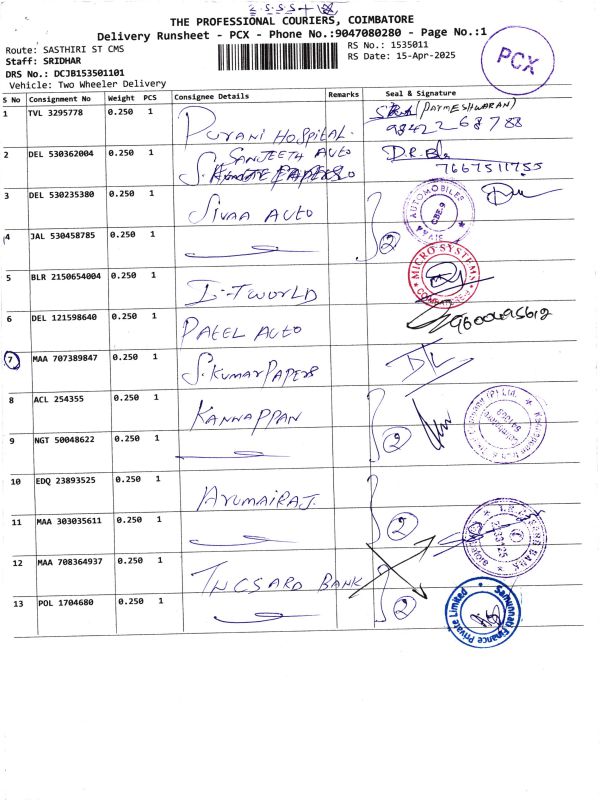 THE PROFESSIONAL COURIERS, COIMBATORE
Delivery Runsheet - PCX - Phone No.:9047080280 - Page No.:1
Route: SASTHIRI ST CMS
RS No.: 1535011
Staff: SRIDHAR
RS Date: 15-Apr-2025
DRS No.: DCJB153501101
Vehicle: Two Wheeler Delivery
PCX
S No Consignment No Weight PCS Consignee Details Remarks Seal & Signature
1 TVL 3295778 0.250 1 PURANI HOSPITAL. (PAYMESHWARAN)
98422 68788
2 DEL 530362004 0.250 1 SANJEETH AUTO
7667511755
3 DEL 530235380 0.250 1 SIVAA AUTO AUTOMOBILES CBE-9
4 JAL 530458785 0.250 1 2
5 BLR 2150654004 0.250 1 I-TWORLD MICRO SYSTEMS
6 DEL 121598640 0.250 1 PATEL AUTO
7 MAA 707389847 0.250 1 S.KUMAR PAPERS
8 ACL 254355 0.250 1 KANNAPPAN
9 NGT 50048622 0.250 1 2
10 EDQ 23893525 0.250 1 ARUMAIRAJ.
11 MAA 303035611 0.250 1 2
12 MAA 708364937 0.250 1 TNCSARD BANK BANK
13 POL 1704680 0.250 1 2 Samunnati Finance Private Limited